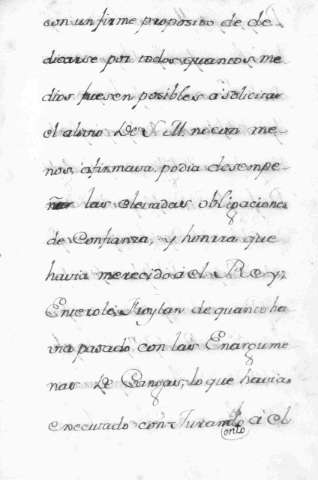 con un firme proposito de de-
dicarse por todos quantos me-
dios fuesen posibles a solicitar
el alivio De S. M. ni con me-
nos, afirmava podia desempe-
ñar las elevadas obligaciones
de Confianza, y honrra que
havia merecido a el Rey,
Enterole Froylan de quanto ha
via pasado con las Energume
nas De Cangas, lo que havia
executado con Juramto a el
onio